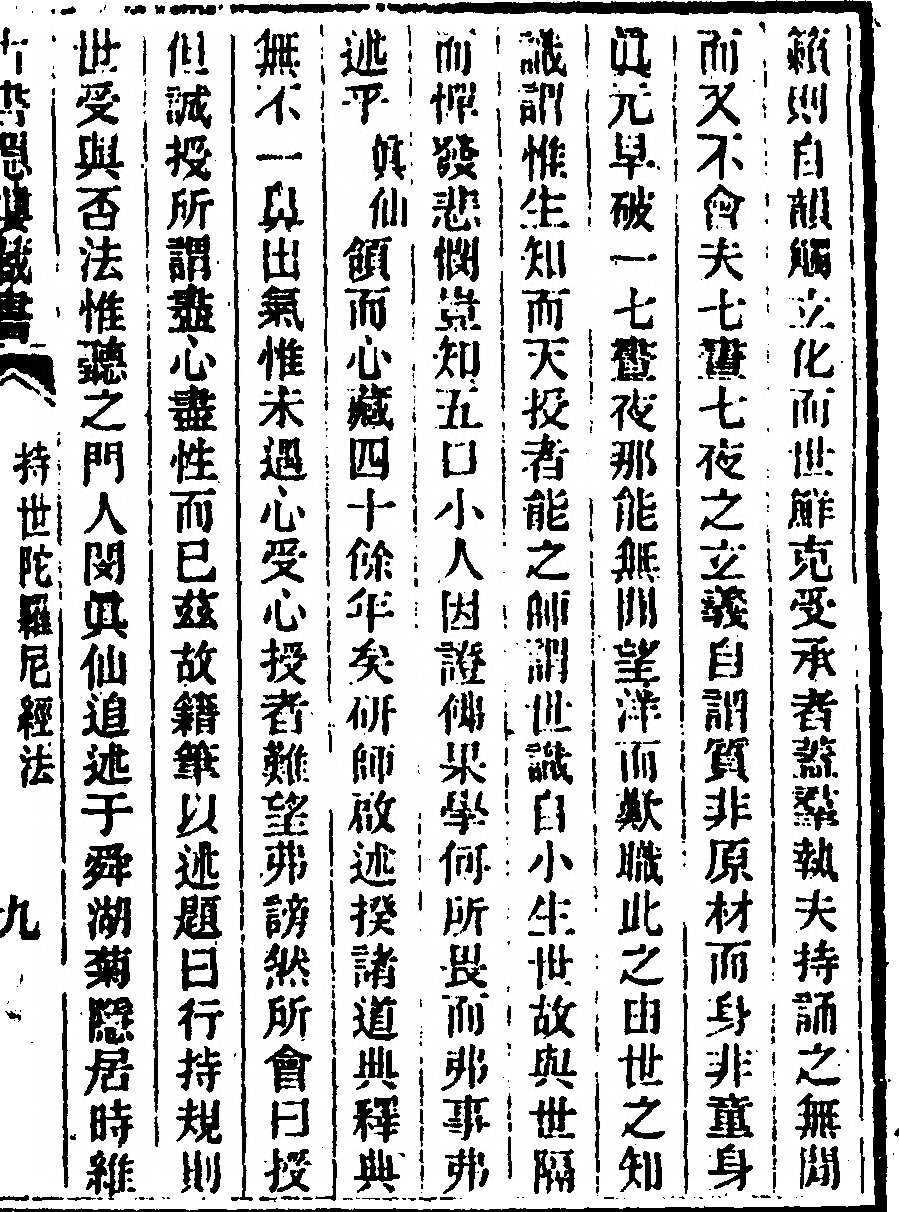 籟則自韻觸立化而世鮮克受承者蓋羣執夫持誦之無間
而又不會夫七晝七夜之立義自謂質非原材而身非童身
眞元早破一七晝夜那能無間望洋而歎職此之由世之知
識謂惟生知而天授者能之師謂世識自小生世故與世隔
而憚發悲憫豈知五口小人因證佛果學何所畏而弗事弗
述乎眞仙頷而心藏四十餘年矣研師啟述揆諸道典釋典
無不一鼻出氣惟未遇心受心授者難望弗謗然所會曰授
但誠授所謂盡心盡性而已茲故籍筆以述題曰行持規則
世受與否法惟聽之門人閔眞仙追述于舜湖菊隱居時維
古書隱樓藏書
持世陀羅尼經法
九